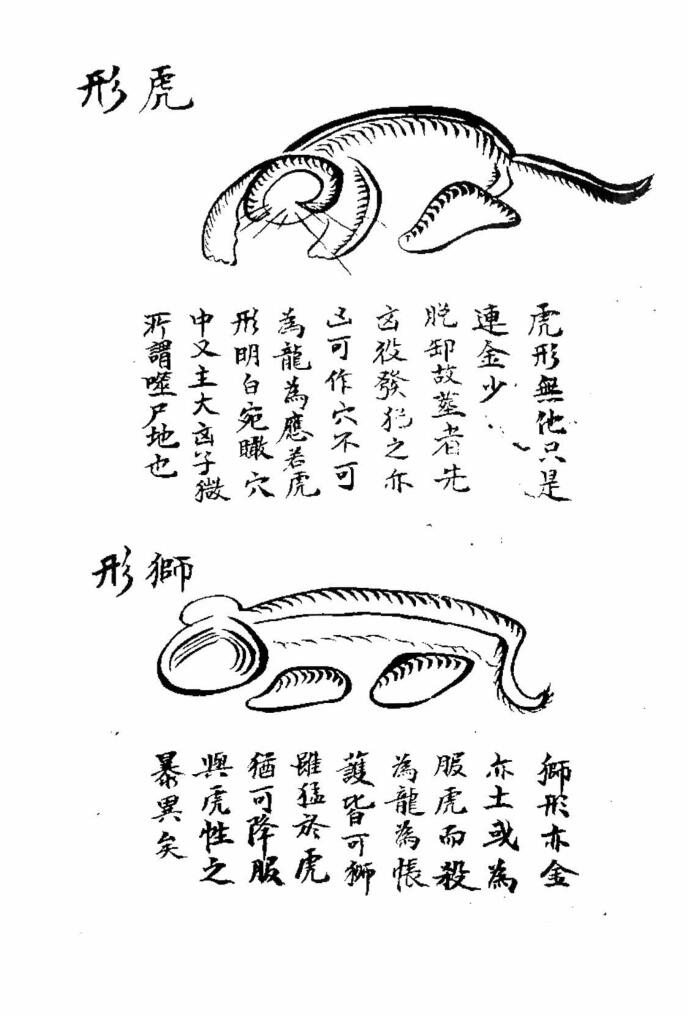 虎形
虎形無他只是
連金少
脫卸故葬者先
凶後發犯之亦
凶可作穴不可
為龍為應若虎
形明白宛瞰穴
中又主大凶子微
所謂噬尸地也
獅形
獅形亦金
亦土或為
服虎而殺
為龍為帳
護皆可獅
雖猛於虎
猶可降服
與虎性之
暴異矣